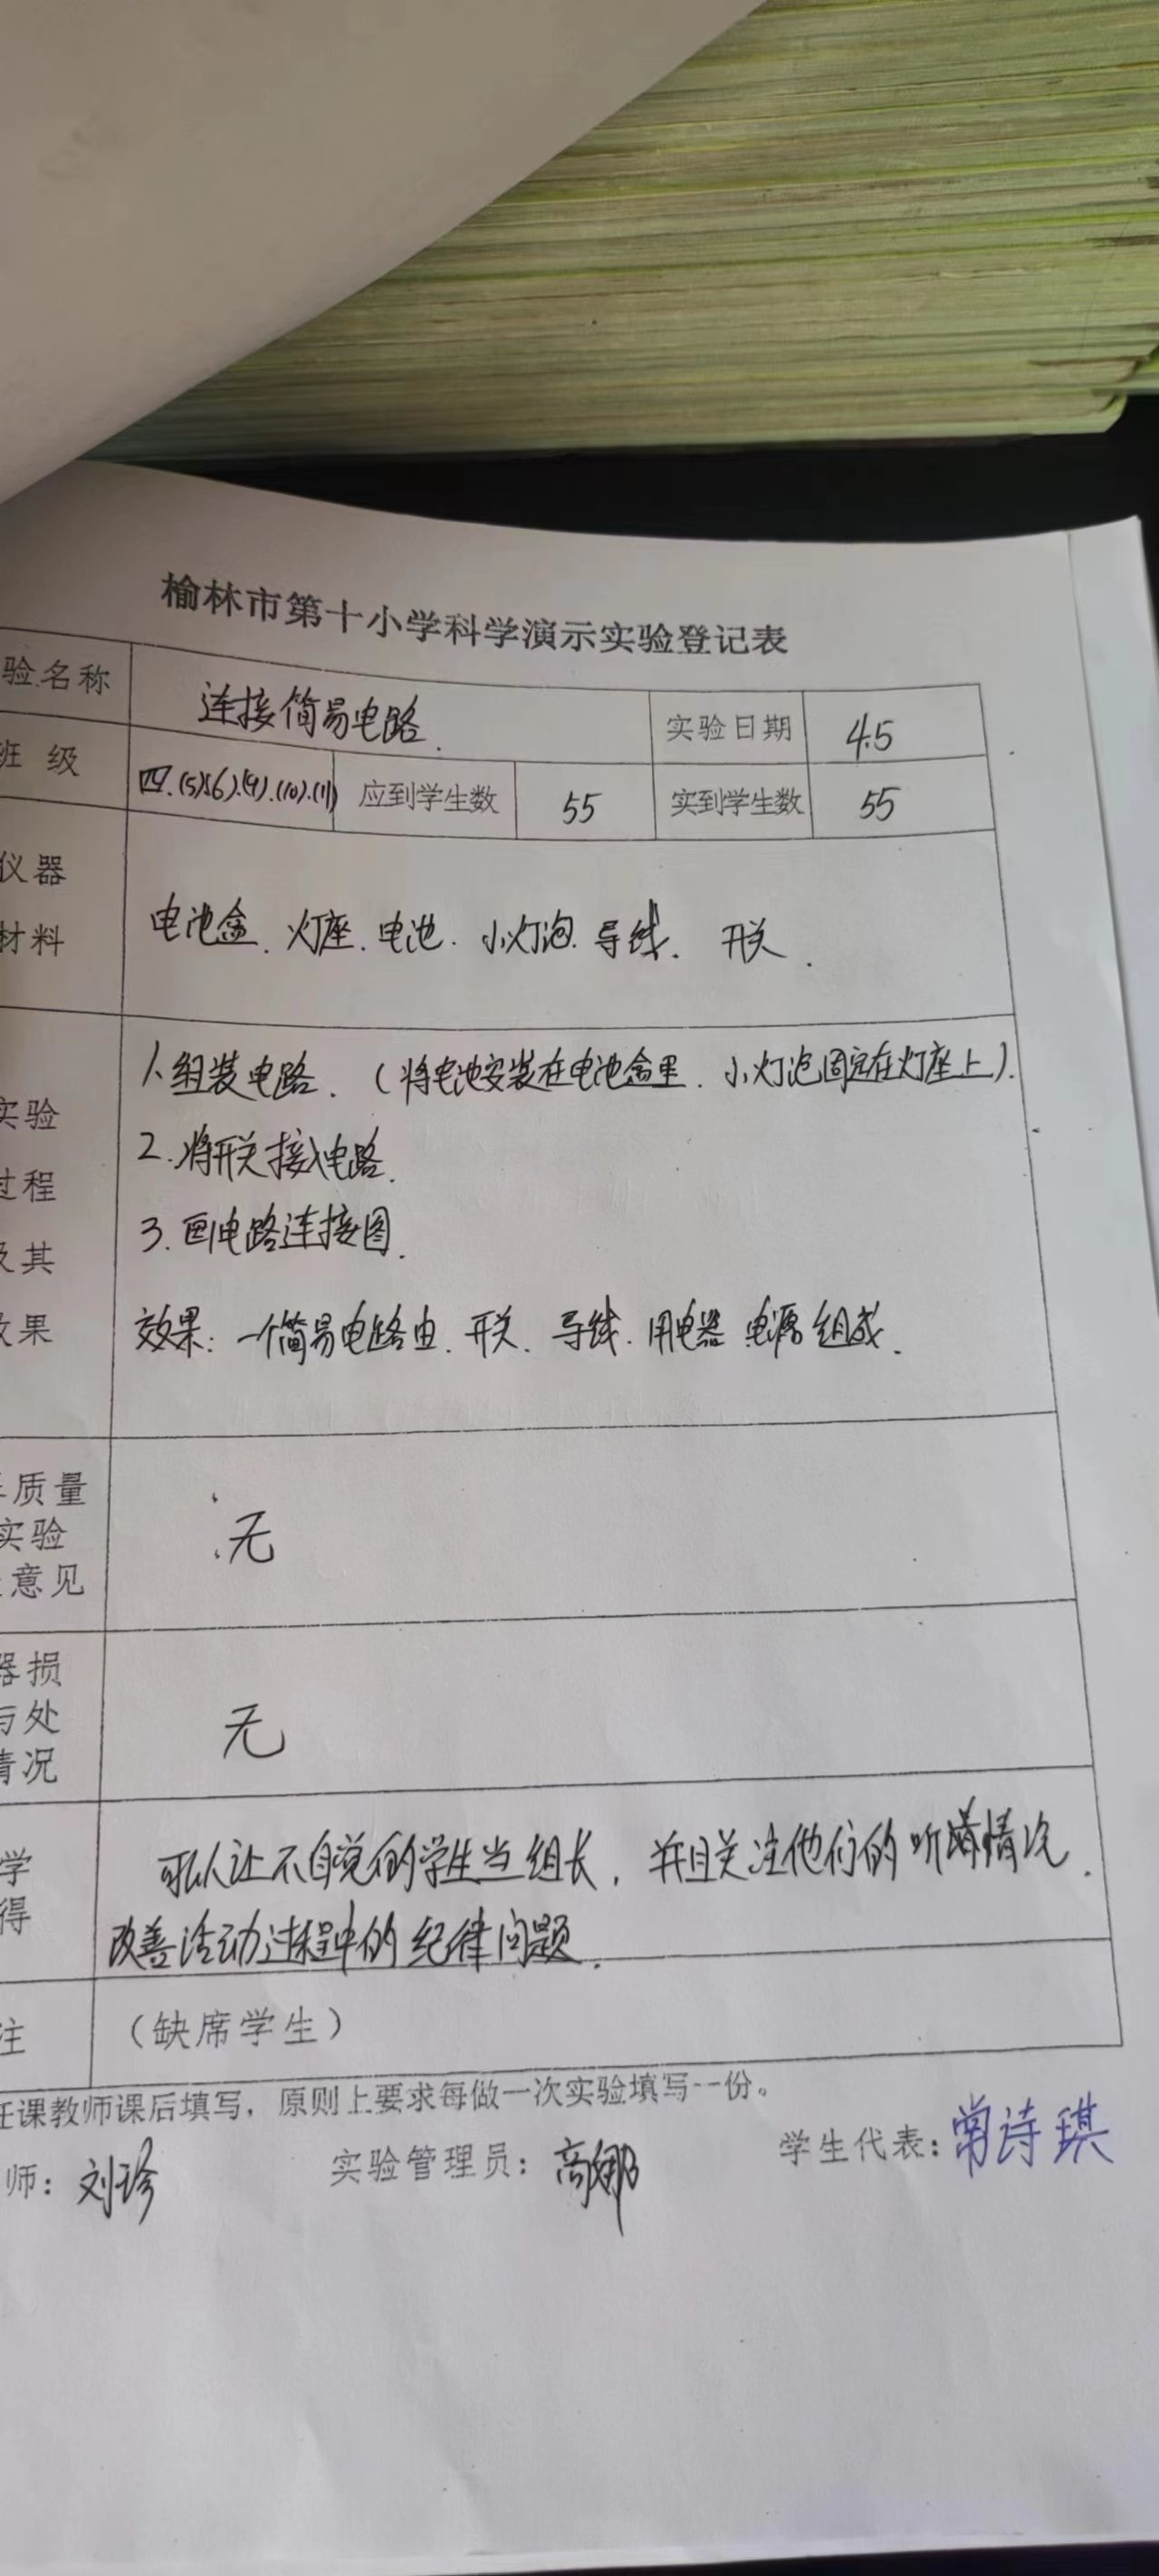 榆林市第十小学科学演示实验登记表
验名称 连接简易电路. 实验日期 4.5
班 级 四.(5)(6).(9).(10).(11) 应到学生数 55 实到学生数 55
仪器
材料
电池盒. 灯座. 电池. 小灯泡. 导线. 开关.
实验
过程
及其
效果
1.组装电路.（将电池安装在电池盒里.小灯泡固定在灯座上）.
2.将开关接入电路.
3.画电路连接图.
效果：一个简易电路由.开关.导线.用电器 电源 组成.
质量
实验
意见
无
器损
与处
情况
无
学
得
可以让不自觉的学生当组长，并且关注他们的听课情况.
改善活动过程中的纪律问题.
注 （缺席学生）
任课教师课后填写，原则上要求每做一次实验填写一份。
师：刘珍 实验管理员：高娜 学生代表：常诗琪